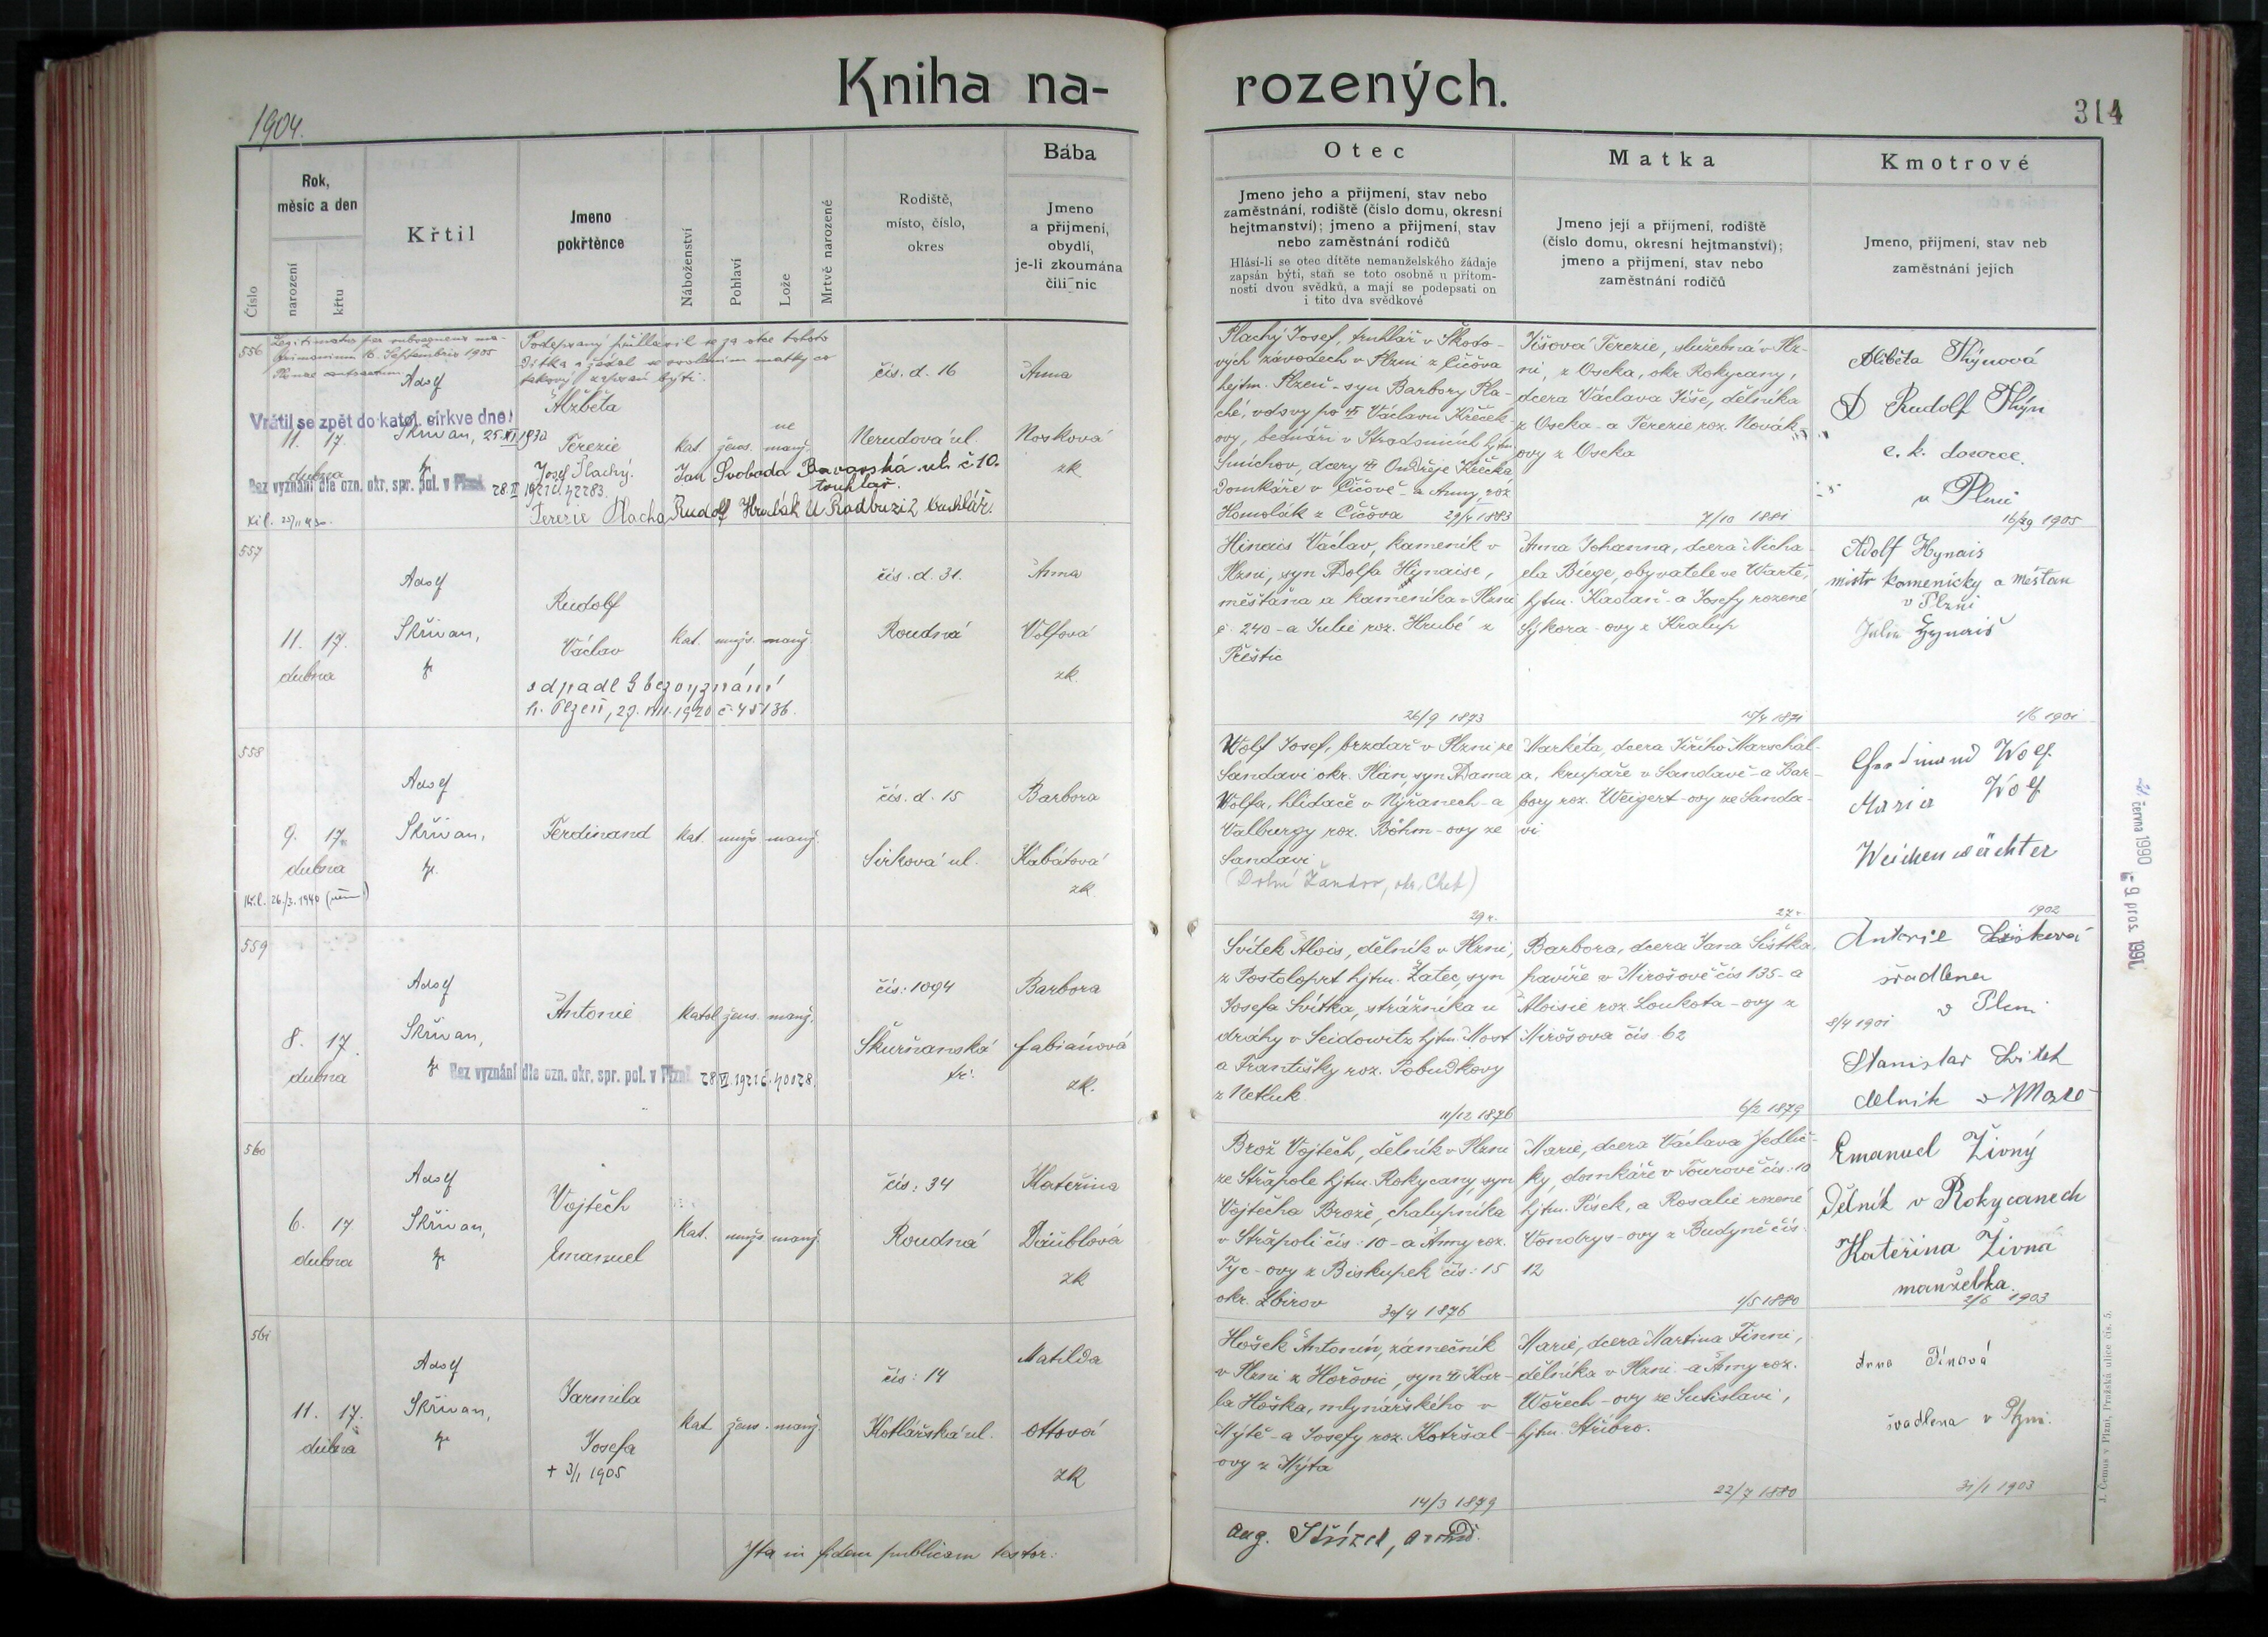 Kniha na-
rozených.
1904.
314
Číslo
Rok,
měsíc a den
narození
křtu
Křtil
Jmeno
pokřtěnce
Náboženství
Pohlaví
Lože
Mrtvě narozené
Rodiště,
místo, číslo,
okres
Bába
Jmeno
a přijmení,
obydlí,
je-li zkoumána
čili nic
Otec
Jmeno jeho a přijmení, stav nebo
zaměstnání, rodiště (číslo domu, okresní
hejtmanství); jmeno a přijmení, stav
nebo zaměstnání rodičů
Hlásí-li se otec dítěte nemanželského žádaje
zapsán býti, staň se toto osobně u přítom-
nosti dvou svědků, a mají se podepsati on
i tito dva svědkové
Matka
Jmeno její a přijmení, rodiště
(číslo domu, okresní hejtmanství);
jmeno a přijmení, stav nebo
zaměstnání rodičů
Kmotrové
Jmeno, přijmení, stav neb
zaměstnání jejich
556
Legitimatio per subsequens ma-
trimonium 18. Septembris 1905
contractum
Podepsaný přihlásil se za otce tohoto
dítka a žádal se svolením matky co
takový zapsán býti.
Adolf
Skřivan,
Vrátil se zpět do katol. církve dne
25.XI 1930
11. 17.
dubna
Alžběta
Terezie
kat. žens. ne
manž.
čís. d. 16
Nerudova ul.
Anna
Nosková
zk
Josef Plachý.
Jan Svoboda Bavorská ul. č 10.
truhlář.
Bez vyznání dle ozn. okr. spr. pol. v Plzni
28.II 1921 č. 42283.
Terezie Plachá
Rudolf Hrušák U Radbuzi 2 truhlář.
Plachý Josef, truhlář v Škodo-
vých závodech v Plzni z Čičova
hejtm. Plzeň - syn Barbory Pla-
ché, vdovy po Václavu Křeček-
ovy, bednáři v Stradonicích hjtm.
Smíchov, dcery Ondřeje Křečka
domkáře v Čičově - a Anny roz.
Homolák z Čičova 29/4 1883
Jíšová Terezie, služebná v Plz-
ni, z Oseka, okr. Rokycany,
dcera Václava Jíše, dělníka
z Oseka - a Terezie roz. Novák-
ovy z Oseka
7/10 1881
Alžběta Thýnová
Rudolf Thýn
c. k. dozorce
v Plzni
16/29 1905
557
11. 17.
dubna
Adolf
Skřivan,
Rudolf
Václav
kat. mužs. manž.
čís. d. 31.
Roudná
Anna
Volfová
zk.
odpadl k bezvyznání
h. Plzeň, 29. VIII. 1920 č. 45136.
Hinais Václav, kameník v
Plzni, syn Adolfa Hynaise,
měšťana a kameníka v Plzni
č. 240 - a Julie roz. Hrubé z
Přeštic
26/9 1873
Anna Johanna, dcera Micha-
ela Biege, obyvatele ve Wartě,
hjtm. Kadaň - a Josefy rozené
Sýkora - ovy z Kralup
15/4 1871
Adolf Hynais
mistr kamenický a měšťan
v Plzni
Julie Hynais
1/6 1901
558
9. 17.
dubna
Adolf
Skřivan,
Ferdinand
kat. mužs manž.
čís. d. 15
Sirková ul.
Barbora
Kabátová
zk
26./3. 1940
Wolf Josef, brzdař v Plzni ze
Sandavi okr. Plán, syn Adama
Wolfa, hlídače v Nýřanech - a
Valburgy roz. Böhm - ovy ze
Sandavi
(Dolní Žandov, okr. Cheb)
29 r.
Markéta, dcera Jiřího Marschál-
a, krupaře v Sandavě - a Bar-
bory roz. Weigert - ovy ze Sanda-
vi
27 r.
Ferdinand Wolf
Maria Wolf
Weichenwächter
1902
559
8. 17.
dubna
Adolf
Skřivan,
Antonie
katol žens. manž.
čís: 1094
Škurňanská
tř.
Barbora
Fabiánová
zk.
Bez vyznání dle ozn. okr. spr. pol. v Plzni
28.VI. 1921 č. 40128.
Svítek Alois, dělník v Plzni,
z Postoloprt hjtm. Žatec, syn
Josefa Svítka, strážníka u
dráhy v Seidowitz hjtm. Most
a Františky roz. Pobudkovy
z Netluk
11/12 1876
Barbora, dcera Jana Šístka,
havíře v Mirošově čís 135 - a
Aloisie roz. Loukota - ovy z
Mirošova čís. 62
6/2 1879
Antonie
švadlena
v Plzni
8/4 1901
Stanislav Svitek
dělník v
560
6. 17
dubna
Adolf
Skřivan,
Vojtěch
Emanuel
kat. mužs manž.
čís: 34
Roudná
Kateřina
Däublová
zk
Brož Vojtěch, dělník v Plzni
ze Strápole hjtm. Rokycany, syn
Vojtěcha Brože, chalupníka
v Strápoli čís: 10 - a Anny roz.
Tyc - ovy z Biskupek čís: 15
okr. Zbirov 30/4 1876
Marie, dcera Václava Jedlič-
ky, domkáře v Touřově čís: 10
hjtm. Písek, a Rosalie rozené
Vondrys - ovy z Budyně čís.
12
1/5 1880
Emanuel Živný
Dělník v Rokycanech
Kateřina Živná
manželka.
2/6 1903
561
11. 17.
dubna
Adolf
Skřivan,
Jarmila
Josefa
+ 3/1 1905
kat žens. manž.
čís: 14
Kotlářská ul.
Matilda
Ottová
zk
Hošek Antonín, zámečník
v Plzni z Hořovic, syn Kar-
la Hoška, mlynářského v
Mýtě - a Josefy roz. Kotršal-
ovy z Mýta
14/3 1879
Marie, dcera Martina Tinni,
dělníka v Plzni - a Anny roz.
Wořech - ovy ze Sutislavi,
hjtm. Stříbro.
22/7 1880
Anna Tinová
švadlena v Plzni.
31/1 1903
Ita in fidem publicam testor:
Aug. Střízek,
červa 1990
- 9. pros. 1991
J. Čemus v Plzni, Pražská ulice čís. 5.